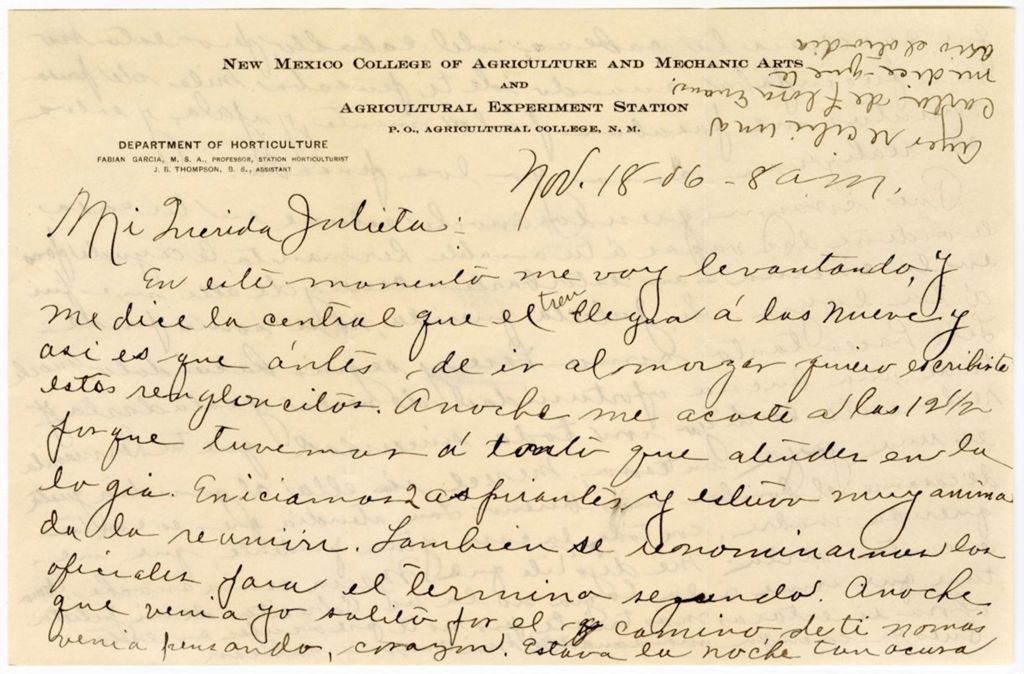 NEW MEXICO COLLEGE OF AGRICULTURE AND MECHANIC ARTS
AND
AGRICULTURAL EXPERIMENT STATION
P. O., AGRICULTURAL COLLEGE, N. M.
DEPARTMENT OF HORTICULTURE
FABIAN GARCIA, M. S. A., PROFESSOR, STATION HORTICULTURIST
J. B. THOMPSON, B. S., ASSISTANT
Ayer recibi una
carta de Flora Evans,
me dice que te
el otro dia
Nov. 18-06 - 8 a.m.
Mi Querida Julieta:
En este momento me voy levantando, y
me dice la central que el tren llegua á las nueve y
asi es que ántes de ir almorzar quiero escribirte
estos rengloncitos. Anoche me acoste a las 12 1/2
porque tuvemos á tonto que atender en la
logia. Eniciamos 2 aspirantes y estuvo muy anima
da la reunion. Tambien se renominarnos los
oficiales para el termino segundo. Anoche
que venia yo solito por el camino, de ti nomás
venia pensando, corazon. Estava la noche tan ocura